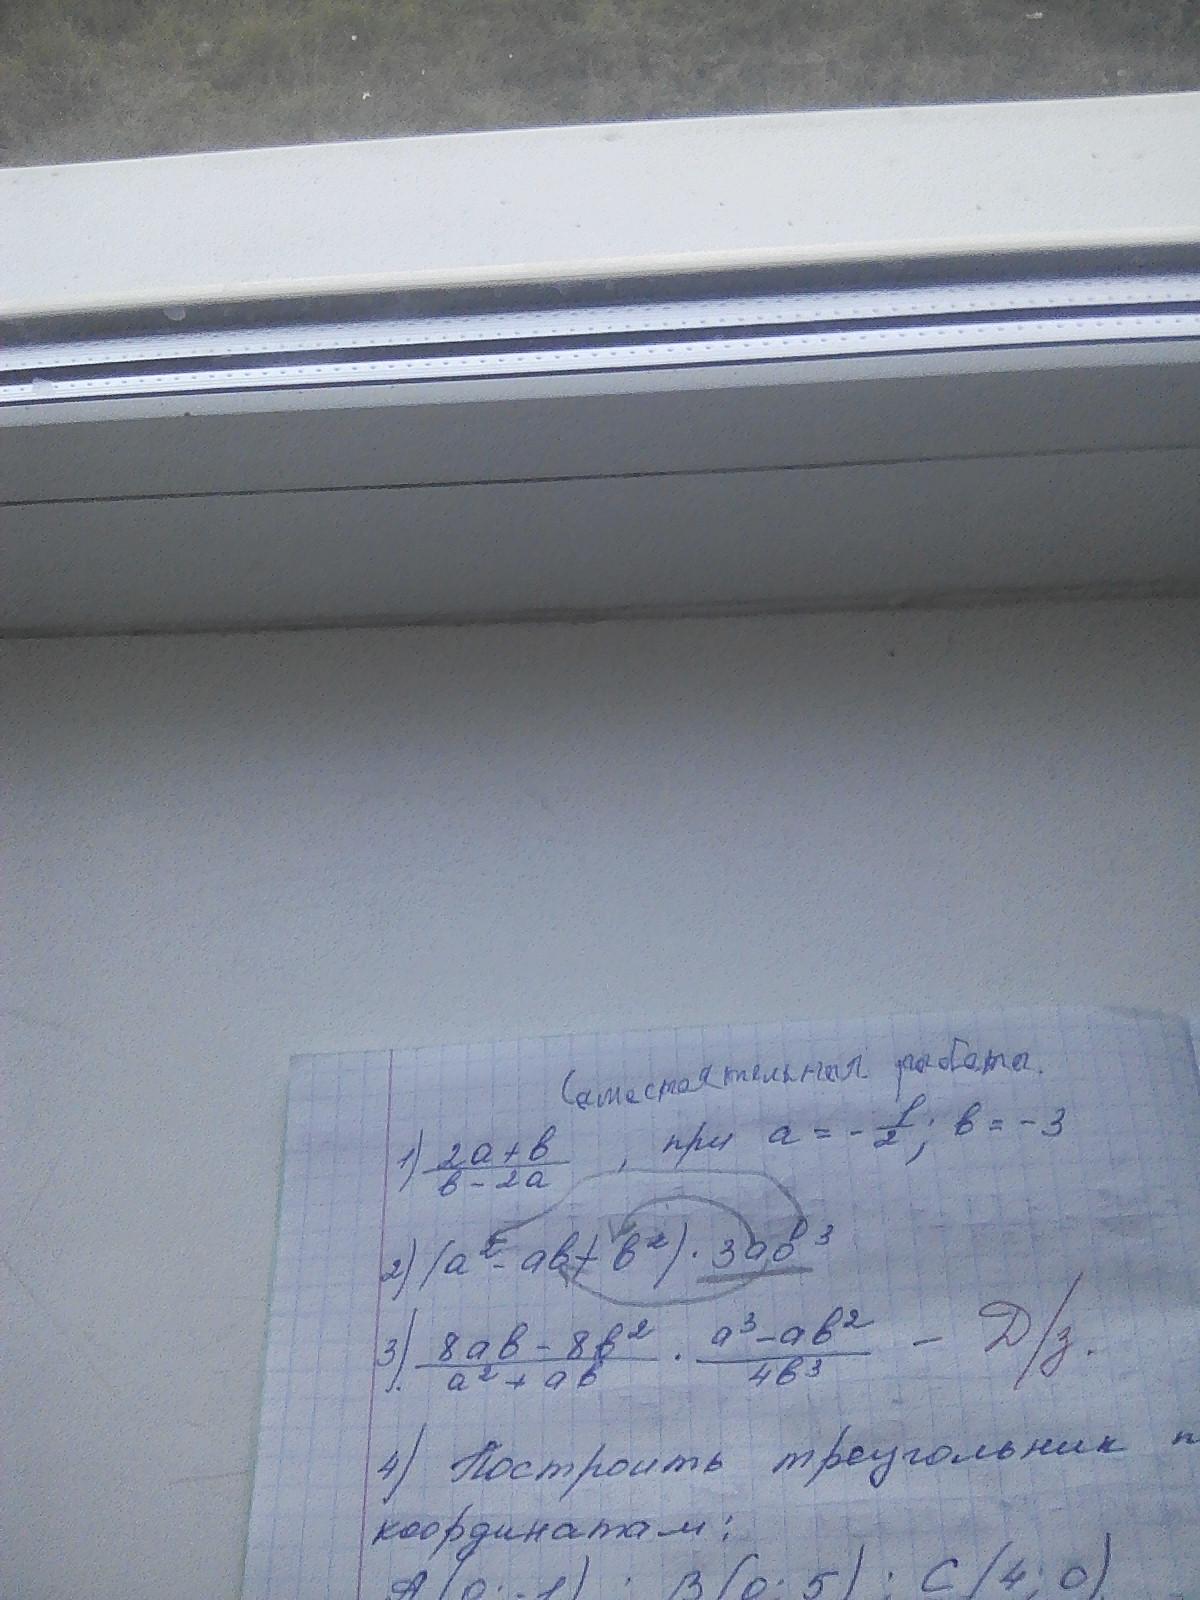 Самостоятельная работа.
1) (2a+b)/(b-2a), при a = -1/2; b = -3
2) (a² - ab + b²) · 3ab³
3) (8ab - 8b²)/(a² + ab) · (a³ - ab²)/(4b³) - Д/з.
4) Построить треугольник п
координатам:
A(0; -1); B(0; 5); C(4; 0)